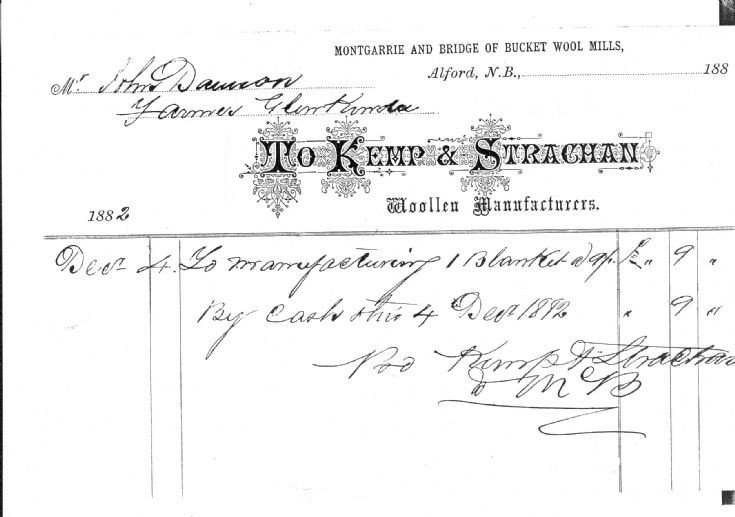 MONTGARRIE AND BRIDGE OF BUCKET WOOL MILLS,
Alford, N.B., 188
Mr John
Farmer Glenkindie
To Kemp & Strachan
Woollen Manufacturers.
1882
Decr 4. To manufacturing 1 Blanket @ 9/. £ " 9 "
By cash this 4th Decr 1882 " 9 "
Pro Kemp & Strachan
McB